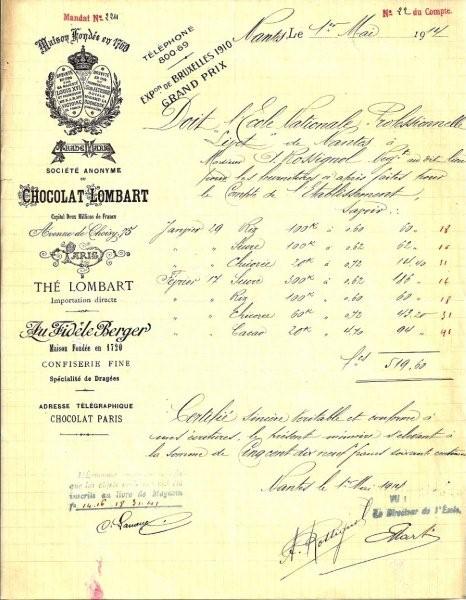 Mandat No 224
No 22 du Compte.
Maison Fondée en 1760
TÉLÉPHONE
800-69
EXPon DE BRUXELLES 1910
GRAND PRIX
Nantes, Le 1er Mai 1914
LOUIS XVI
TRADE MARK
SOCIÉTÉ ANONYME
DU
CHOCOLAT LOMBART
Capital Deux Millions de Francs
Avenue de Choisy, 75
PARIS
THÉ LOMBART
Importation directe
Au Fidèle Berger
Maison Fondée en 1720
CONFISERIE FINE
Spécialité de Dragées
ADRESSE TÉLÉGRAPHIQUE
CHOCOLAT PARIS
Doit l'Ecole Nationale Professionnelle
de Nantes à
Monsieur Rossignol Négt au dit lieu
pour les fournitures ci après faites pour
le Compte de l'Etablissement,
Savoir :
Janvier 29 Riz 100k à 0,60 60 18
" " Sucre 100k à 0,62 62 16
" " Chicorée 20k à 0,72 14,40 31
Février 17 Sucre 300k à 0,62 186 16
" " Riz 100k à 0,60 60 18
" " Chicorée 60k à 0,72 43,20 31
" " Cacao 20k à 4,70 94
519,60
Certifié sincère véritable et conforme à
mes écritures, le présent mémoire s'élevant à
la somme de Cinq cent dix neuf francs soixante centimes
Nantes le 1er Mai 1914
que les objets
inscrits au livre de Magasin
fo 14.16 18 31.41
VU :
Le Directeur de l'École,
A. Rossignol